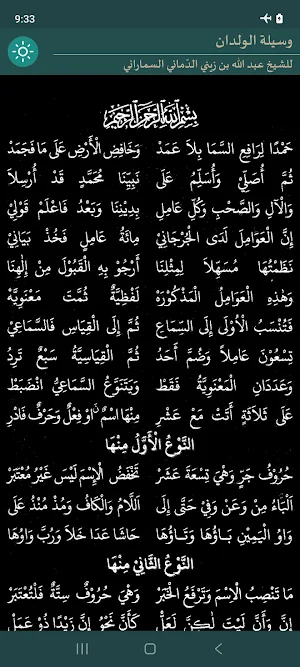 9:33
وسيلة الولدان
للشيخ عبد الله بن زيني الدّماني السماراني
بِسْمِ اللهِ الرَّحْمٰنِ الرَّحِيْمِ
حَمْدًا لِرَافِعِ السَّمَا بِلَا عَمَدْ وَخَافِضِ الْأَرْضِ عَلَى مَا فَجَمَدْ
ثُمَّ أُصَلِّيْ وَأُسَلِّمُ عَلَى نَبِيِّنَا مُحَمَّدٍ قَدْ أُرْسِلَا
وَالْآلِ وَالصَّحْبِ وَكُلِّ عَامِلِ بِدِيْنِنَا وَبَعْدُ فَاعْلَمْ قَوْلِيْ
إِنَّ الْعَوَامِلَ لَدَى الْجُرْجَانِيْ مِائَةُ عَامِلٍ فَخُذْ بَيَانِيْ
نَظَمْتُهَا مُسَهِّلًا لِمِثْلِنَا أَرْجُوْ بِهِ الْقَبُوْلَ مِنْ إِلٰهِنَا
وَهٰذِهِ الْعَوَامِلُ الْمَذْكُوْرَهْ لَفْظِيَّةٌ ثُمَّتَ مَعْنَوِيَّهْ
فَتُنْسَبُ الْأُوْلَى إِلَى السِّمَاعِ ثُمَّ إِلَى الْقِيَاسِ فَالسَّمَاعِيْ
تِسْعُوْنَ عَامِلًا وَضُمَّ أَحَدُ ثُمَّ الْقِيَاسِيَّةُ سَبْعٌ تَرِدُ
وَعَدَدَانِ الْمَعْنَوِيَّةُ فَقَطْ وَيَتَنَوَّعُ السَّمَاعِيُّ انْضَبَطْ
عَلَى ثَلَاثَةٍ أَتَتْ مَعْ عَشْرِ مِنْهَا اسْمٌ اَوْ فِعْلٌ وَحَرْفٌ فَادْرِ
النَّوْعُ الْأَوَّلُ مِنْهَا
حُرُوْفُ جَرٍّ وَهْيَ تِسْعَةَ عَشَرْ تَخْفَضُ الْاِسْمَ لَيْسَ غَيْرُ مُعْتَبَرْ
اَلْبَاءُ مِنْ وَعَنْ وَفِيْ حَتَّى إِلَى اَللَّامُ وَالْكَافُ وَمُذْ مُنْذُ عَلَى
وَاوُ الْيَمِيْنِ بَاؤُهَا وَتَاؤُهَا حَاشَا عَدَا خَلَا وَرُبَّ وَاوُهَا
النَّوْعُ الثَّانِيْ مِنْهَا
مَا تَنْصِبُ الْاِسْمَ وَتَرْفَعُ الْخَبَرْ وَهْيَ حُرُوْفٌ سِتَّةٌ فَلْتُعْتَبَرْ
إِنَّ وَأَنَّ لَيْتَ لٰكِنَّ لَعَلّْ كَأَنَّ نَحْوُ إِنَّ زَيْدًا ذُوْ عَمَلْ